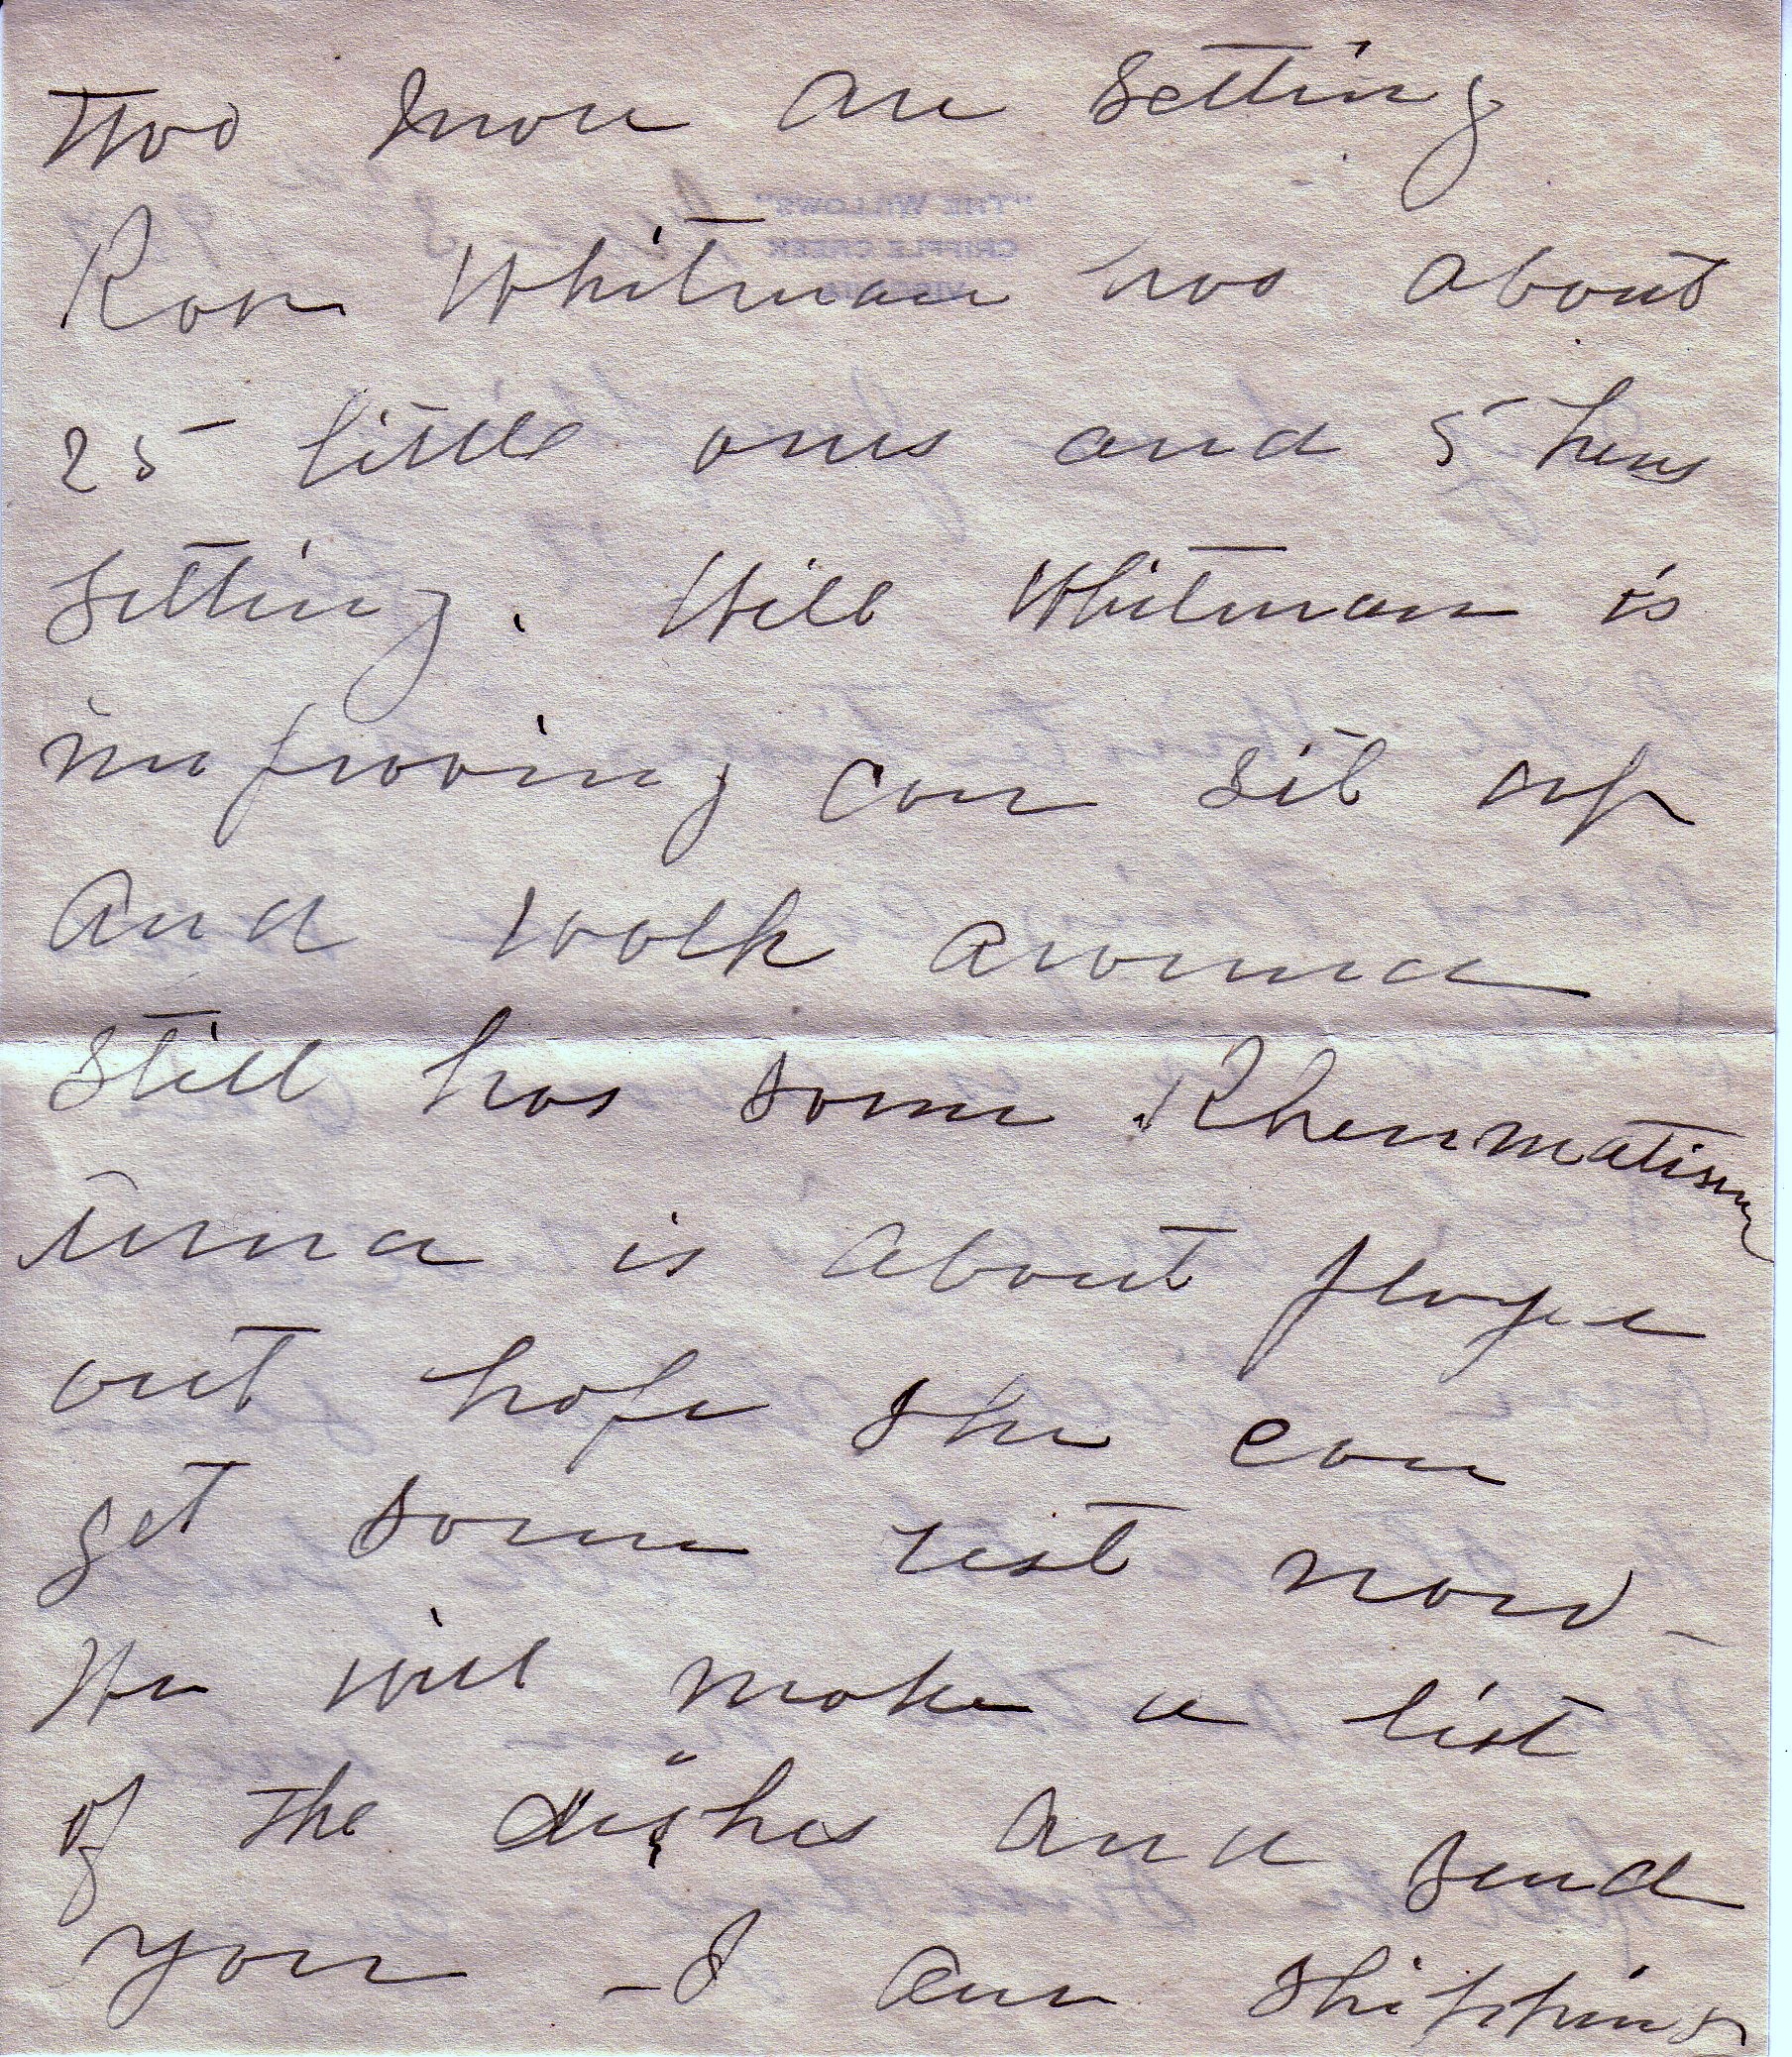 two more are setting
Rob Whitman has about
25 little ones and 5 hens
setting. Will Whitman is
improving can sit up
and walk around
still has some Rheumatism
is about played
out hope she can
get some rest now –
We will make a list
of the dishes and send
you – I am shipping
"THE WILLOWS"
CRIPPLE CREEK
VIRGINIA